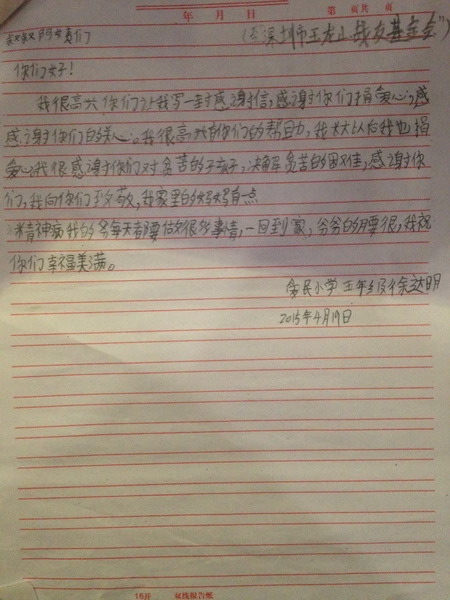 年 月 日 第 页共 页
叔叔阿姨们 (深圳市玉龙山战友基金会")
你们好!
我很高兴你们让我写一封感谢信,感谢你们捐爱心,感
感谢你们的关心。我很高兴有你们的帮助,我长大以后我也捐
爱心我很感谢你们对贫苦的孩子,决解贫苦的困难,感谢你
们,我向你们致敬,我家里的妈妈有一点
精神病我的爷每天都要做很多事情,一回到家,爷爷的腰很,我祝
你们幸福美满。
民小学三年级徐达明
2015年4月19日
16开 双线报告纸